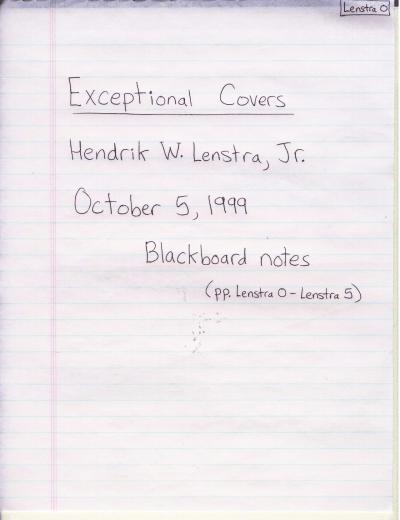 Lenstra 0
Exceptional Covers
Hendrik W. Lenstra, Jr.
October 5, 1999
Blackboard notes
(pp. Lenstra 0 - Lenstra 5)